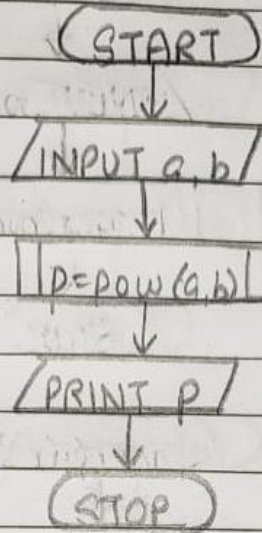 START
INPUT a, b
p=pow(a,b)
PRINT p
STOP